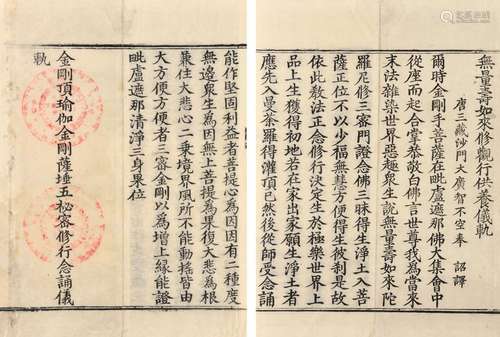 無量壽如來修觀行供養儀軌
唐三藏沙門大廣智不空奉 詔譯
爾時金剛手菩薩在毗盧遮那佛大集會中
從座而起合掌恭敬白佛言世尊我為當來
末法雜染世界惡趣衆生說無量壽如來陀
羅尼修三密門證念佛三昧得生淨土入菩
薩正位不以少福無慧方便得生彼剎是故
依此教法正念修行決定生於極樂世界上
品上生獲得初地若在家出家願生淨土者
應先入曼荼羅得灌頂已然後從師受念誦
能作堅固利益者菩提心為因因有二種度
無邊衆生為因無上菩提為果復大悲為根
兼住大悲心二乘境界風所不能動搖皆由
大方便大方便者三密金剛以為增上緣能證
毗盧遮那清淨三身果位
金剛頂瑜伽金剛薩埵五秘密修行念誦儀
軌